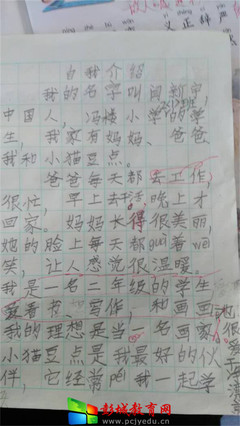 自我介绍
我的名字叫闫新宇,
中国人,冯楼小学的学
生,我家有妈妈、爸爸
我和小猫豆点。
爸爸每天都去工作,
很忙,早上去,晚上才
回家。妈妈长得很美丽,
她的脸上每天都guà着wēi
笑,让人感觉很温暖。
我是一名二年级的学生
爱看书、写作,和画画
我的理想是当一名画家。
小猫豆点是我最好的伙
伴,它经常péi我一起学
彭城教育网
www.pcjyedu.cn